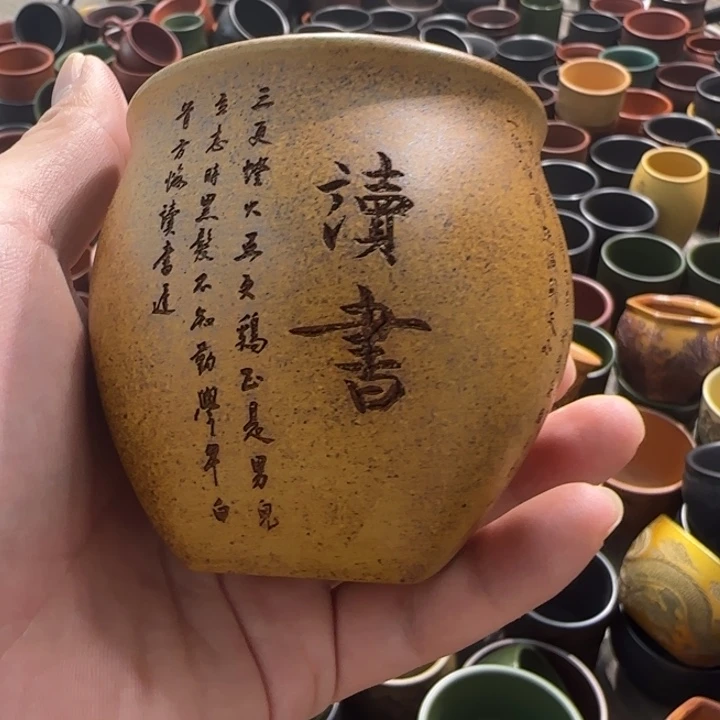 讀書
三更燈火五更鷄正是男兒
立志時黑髮不知勤學早白
首方悔讀書遲